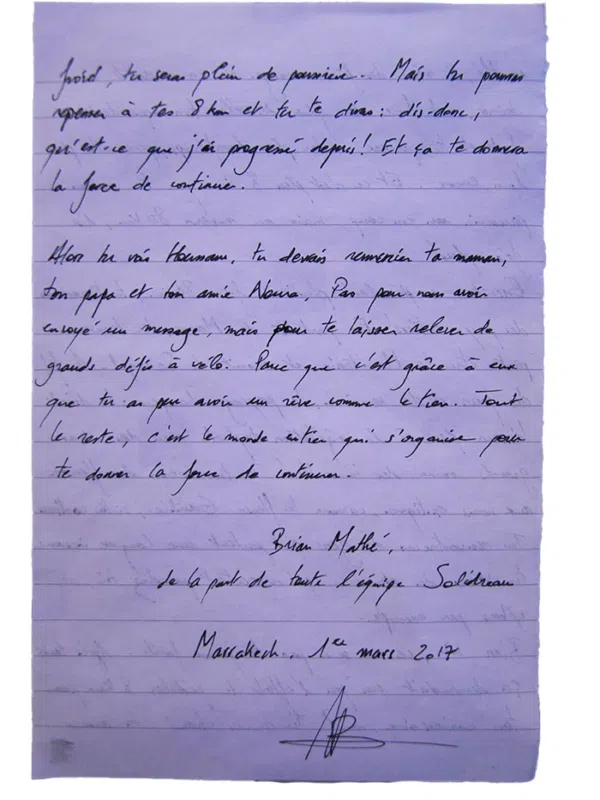 froid, tu seras plein de poussière. Mais tu pourras
repenser à tes 8 km et tu te diras : dis-donc,
qu'est-ce que j'ai progressé depuis ! Et ça te donnera
la force de continuer.
Alors tu vois Houmam, tu devrais remercier ta maman,
ton papa et ton amie Noura, Pas pour nous avoir
envoyé un message, mais pour te laisser relever de
grands défis à vélo. Parce que c'est grâce à eux
que tu as peu avoir un rêve comme le tien. Tout
le reste, c'est le monde entier qui s'organise pour
te donner la force de continuer.
Brian Mathé,
de la part de toute l'équipe Solidreau
Marrakech, 1er mars 2017